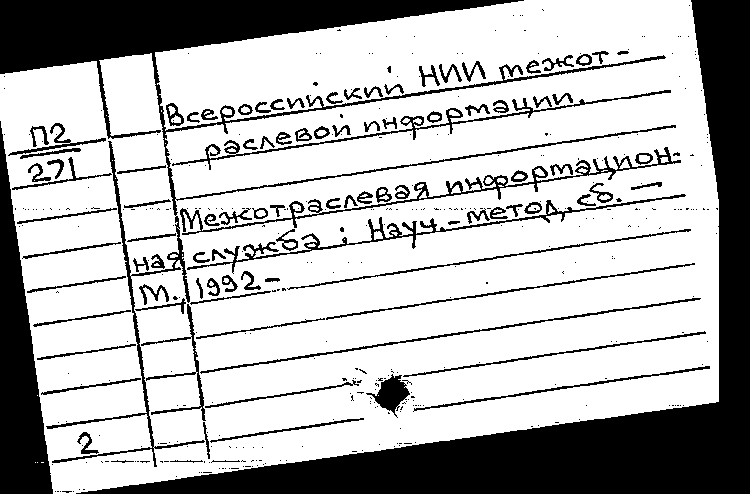 Всероссийский НИИ межот-
раслевой информации.
П2
271
Межотраслевая информацион-
ная служба : Науч.-метод. сб. —
М., 1992-
2